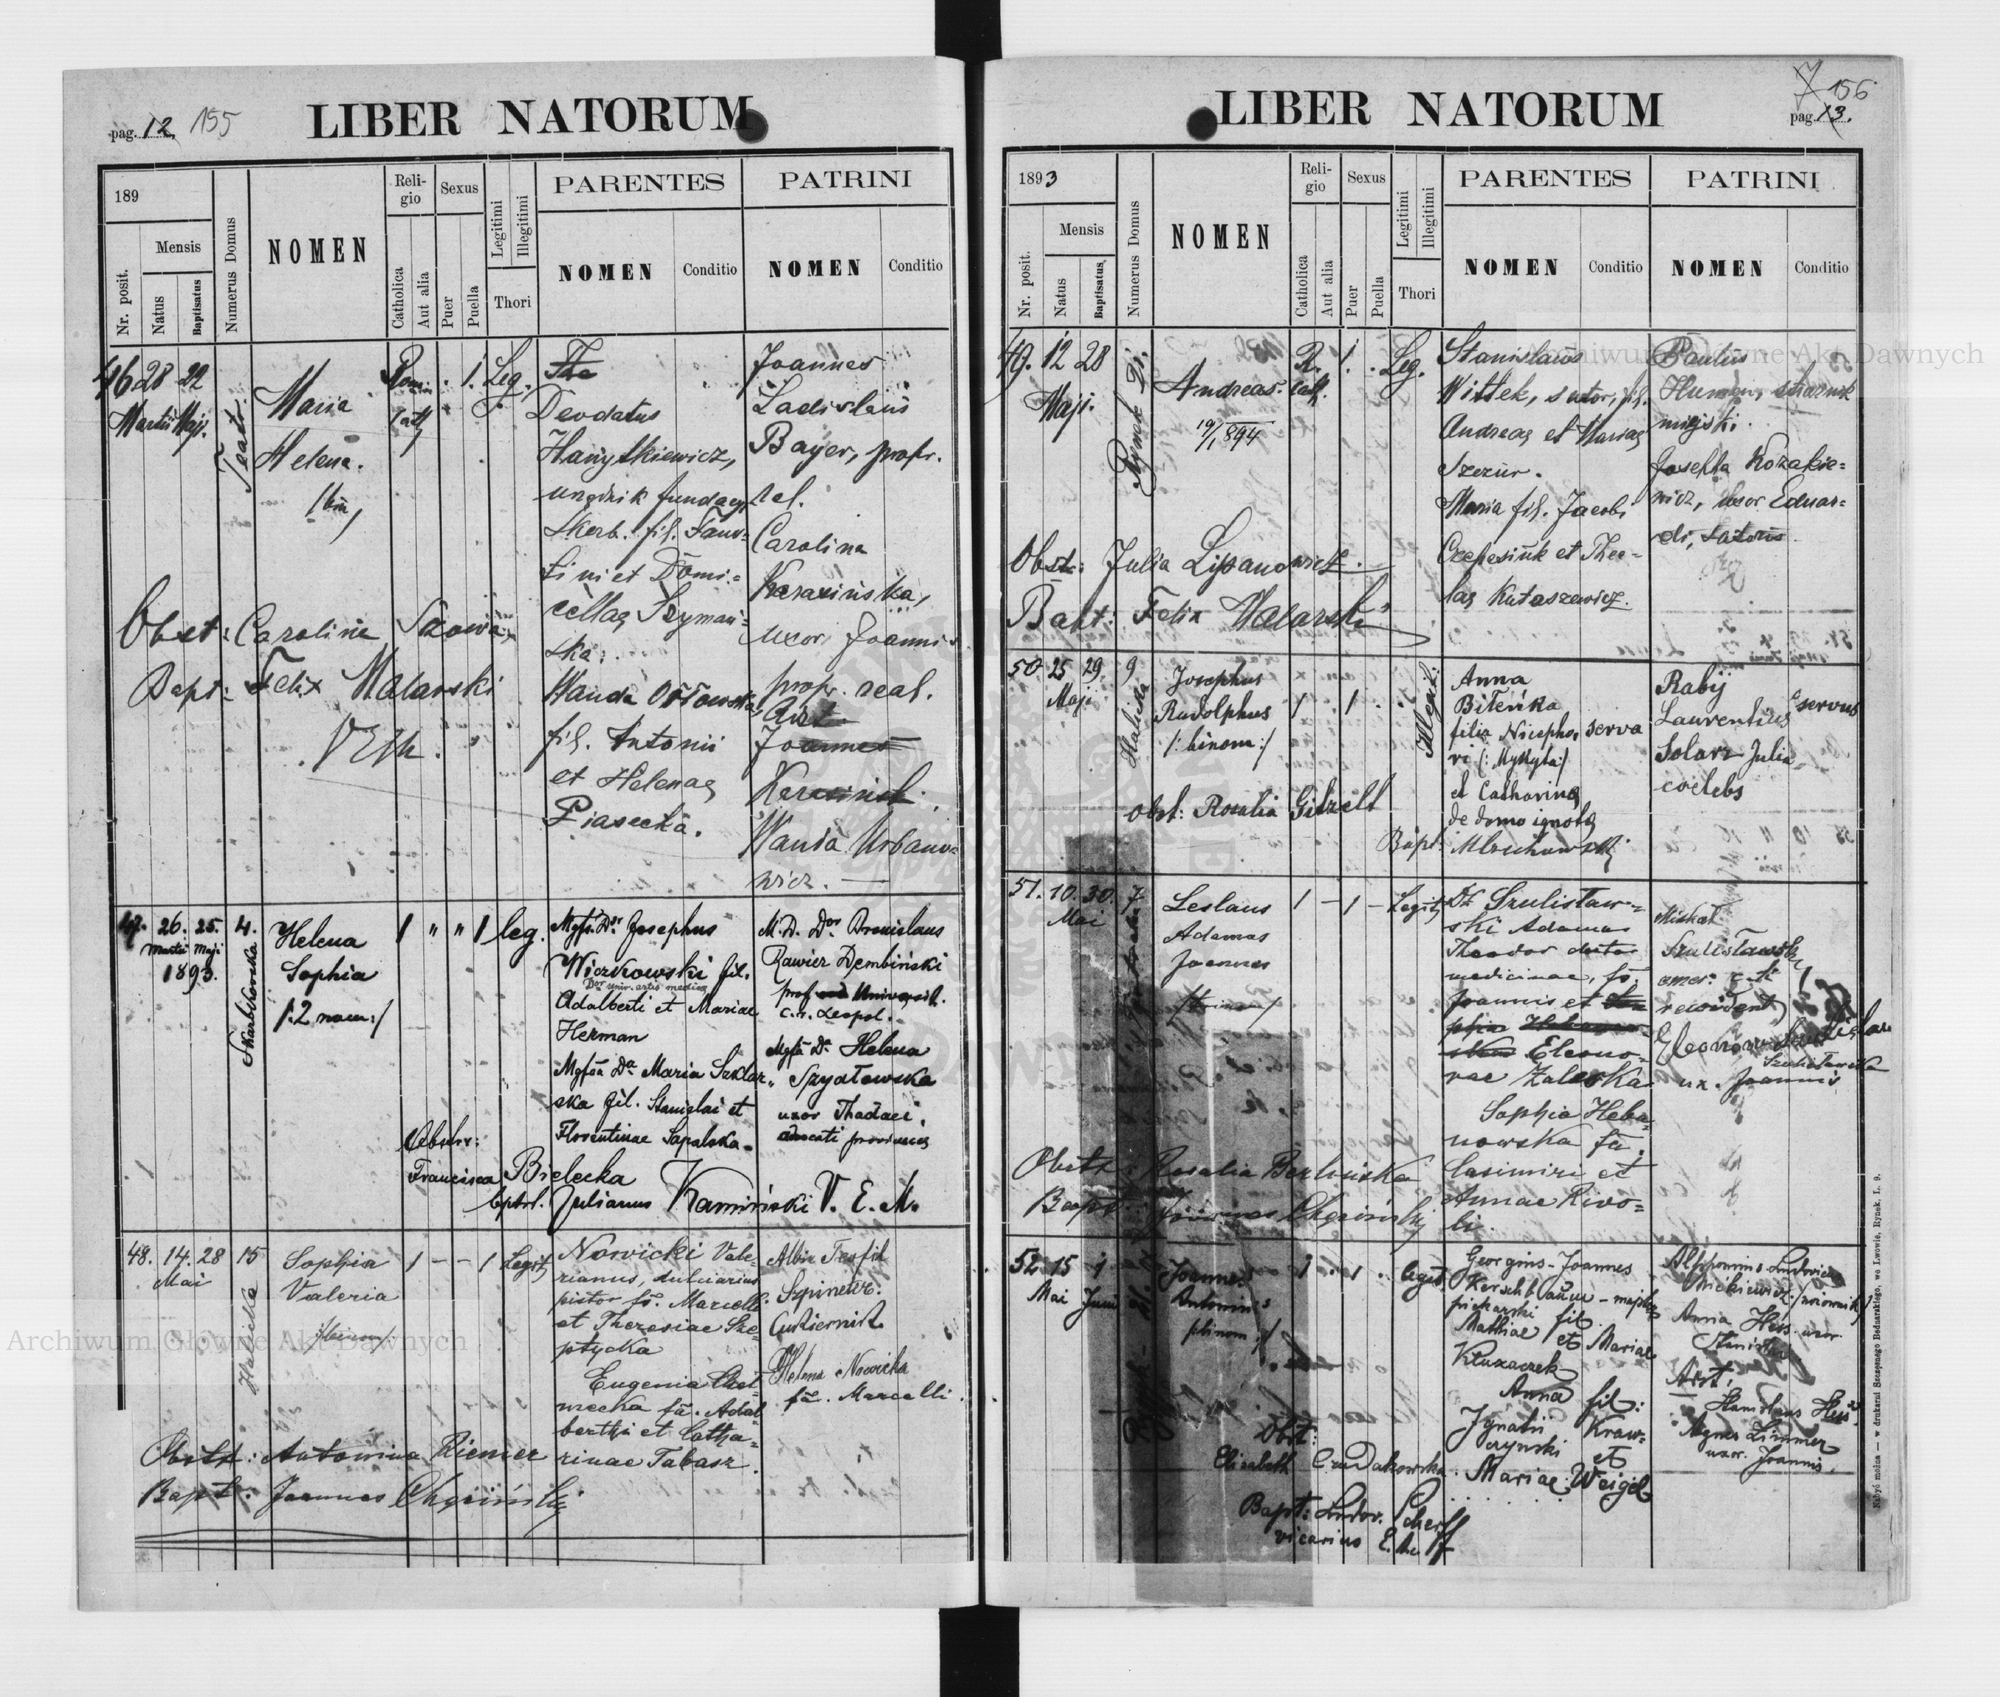 pag. 12. 155
LIBER NATORUM
189
Nr. posit.
Mensis
Natus
Baptisatus
Numerus Domus
NOMEN
Religio
Catholica
Aut alia
Sexus
Puer
Puella
Legitimi
Illegitimi
Thori
PARENTES
NOMEN
Conditio
PATRINI
NOMEN
Conditio
46 28 22
Martii Maji.
Teatr.
Maria
Helena.
Rom.
Cath
1.
Leg.
Deodatus
Hanytkiewicz,
urzędnik fundacyi
Skerb. fil. Faus-
tini et Domi-
cellae Szymań-
ska.
Wanda Orłowska
fil. Antonii
et Helenae
Piasecka.
Joannes
Ladislaus
Bayer, propr.
real.
Carolina
Kerasińska,
uxor Joannis
propr. real.
Ast.
Joannes
Kerasinski.
Wanda Urbano-
wicz.
Obst: Carolina
Bapt: Felix Malarski
VEM.
47. 26. 25. 4.
Martii Maji
1893.
Skarbkowska
Helena
Sophia
/:2 nom:/
1 " " 1 leg.
Mgfs. Ds Josephus
Wiczkowski fil.
Dor univ. artis medica
Adalberti et Mariae
Herman
Mgfa Da Maria Szklar-
ska fil. Stanislai et
Florentinae Sapalska.
M. D. Dor Bronislaus
Rawicz Dembiński
prof. Universit.
c. r. Leopol.
Mgfa Da Helena
Szydłowska
uxor Thadaei,
advocati provinciae
Obstr:
Francisca Bielecka
bptsl. Julianus Kamiński V. E. M.
48. 14. 28 15
Mai
Halicka
Sophia
Valeria
/:binom:/
1 - - 1 Legit
Nowicki Vale-
rianus, dulciarius
pistor fs. Marcelli
et Theresiae Sze-
ptycka
Eugenia Chot-
wecka fa. Adal-
berthi et Catha-
rinae Tabasz.
Albin Teofil
Szpinetr.
Cukiernik
Helena Nowicka
fa. Marcelli.
Obstt: Antonina Riemer
Bapt: Joannes Chęciński
7 156
pag. 13.
LIBER NATORUM
1893
Nr. posit.
Mensis
Natus
Baptisatus
Numerus Domus
NOMEN
Religio
Catholica
Aut alia
Sexus
Puer
Puella
Legitimi
Illegitimi
Thori
PARENTES
NOMEN
Conditio
PATRINI
NOMEN
Conditio
49. 12 28
Maji.
Rynek
Andreas.
19/1 894
R.
Cath.
1.
Leg.
Stanislaus
Wittek, sutor, fil.
Andreae et Mariae
Szczur.
Maria fil. Jacobi
Czepesiuk et Thec-
lae Kutaszewicz.
Paulus
Humen, strażnik
miejski.
Josepha Kozakie-
wicz, uxor Eduar-
di, sutoris.
Obst: Julia Lipanowicz.
Bapt: Felix Malarski
50. 25 29. 9
Maji
Halicka
Josephus
Rudolphus
/:binom:/
1 1
Illegit:
Anna
Bileńka
filia Nicepho- serva
ri (: Mykyta/
et Catharinae
de domo ignota
Rabij
Laurentius servus
Solarz Julia
coelebs
obst: Rosalia Gitzelt
Bapt:
51. 10. 30. 7
Mai
Leslaus
Adamus
Joannes
1 - 1 - Legit
Dr Szulisław-
ski Adamus
Theodor doctor
medicinae, fs.
Joannis et
Eleono-
rae Zaleska
Sophia Heba-
nowska fa.
Casimiri et
Annae Rivo-
li.
Michał
Szulisławski
emer.
rewident
Eleonora
Szulisławska
ux. Joannis
Obstt: Rosalia
Bapt: Joannes Chęciński
52. 15 1
Mai Junii
Joannes
Antonius
/:binom:/
1 1 legit
Georgius-Joannes
Kerschbaum - majster
piekarski fil.
Mathiae et Mariae
Kłuzaczek
Anna fil:
Ignatii Kraw-
czynski et
Mariae Weigel
Alphonsus Ludovicus
Mickiewicz
Anna Hess uxor
Stanislai
Asst:
Stanislaus Hess
Agnes Zimmer
uxor Joannis.
Obst:
Elisabeth Czudakowska
Bapt: Ludov. Scherff
vicarius E. M.
Nabyć można — w drukarni Szczęsnego Bednarskiego, we Lwowie, Rynek, L. 9.
Archiwum Główne Akt Dawnych
Archiwum Główne Akt Dawnych